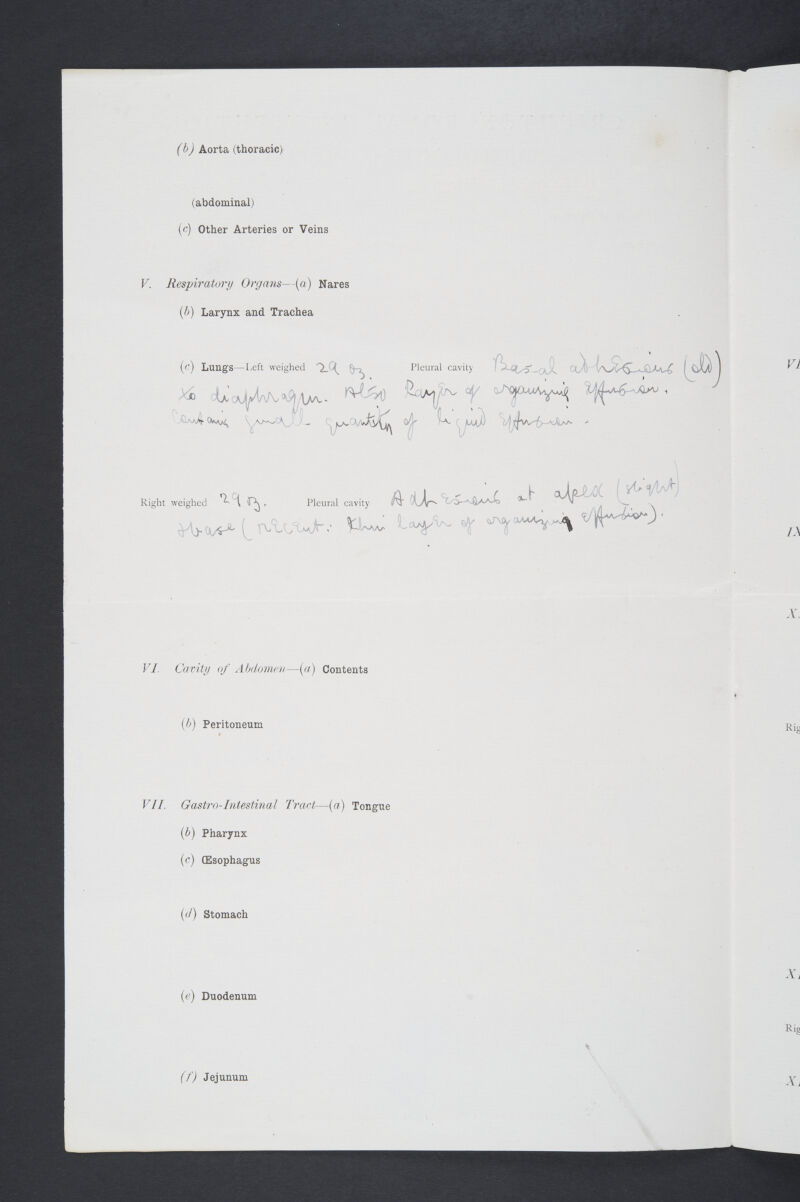 (b) Aorta (thoracic)
(abdominal)
(c) Other Arteries or Veins
V. Respiratory Organs—(a) Nares
(b) Larynx and Trachea
(c) Lungs—Left weighed 29 oz. Pleural cavity Basal adhesions (old)
to diaphragm. Also layer of organizing effusion.
Contains small quantity of liquid effusion.
Right weighed 29 oz. Pleural cavity Adhesions at apex (slight)
& base (recent: thin layer of organizing effusion).
VI. Cavity of Abdomen—(a) Contents
(b) Peritoneum
VII. Gastro-Intestinal Tract—(a) Tongue
(b) Pharynx
(c) Œsophagus
(d) Stomach
(e) Duodenum
(f) Jejunum
VI
IX
X.
Rig
X
Rig
X